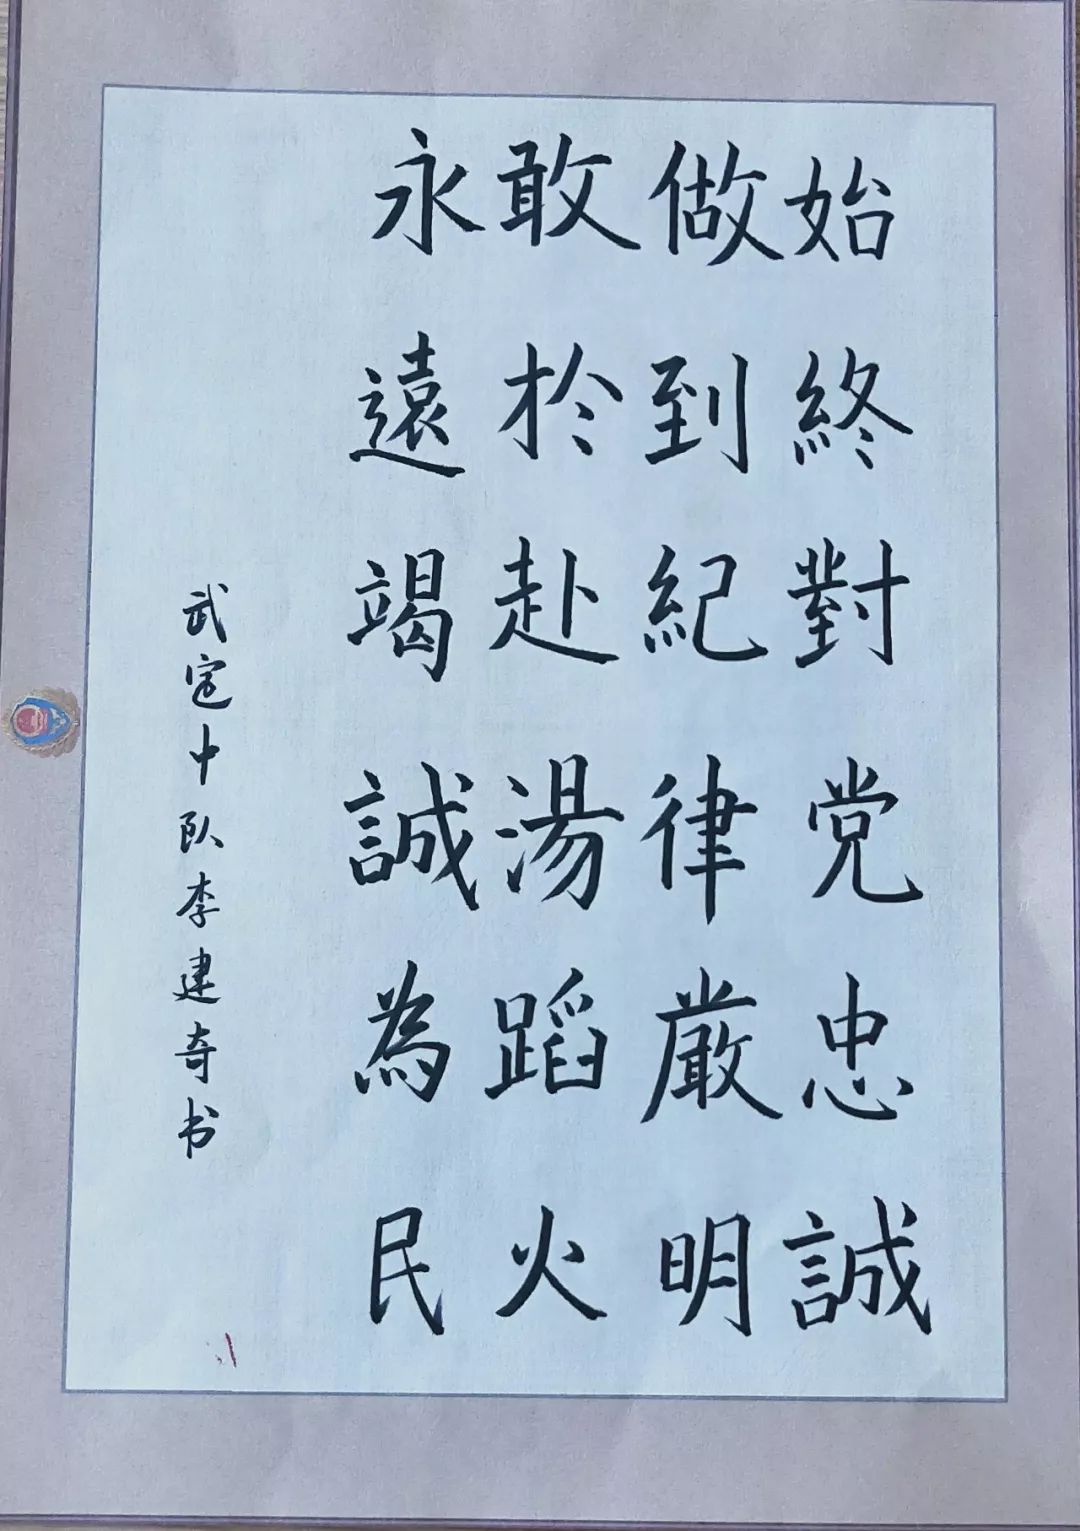 始終對党忠誠
做到紀律嚴明
敢於赴湯蹈火
永遠竭誠為民
武定中队李建奇书